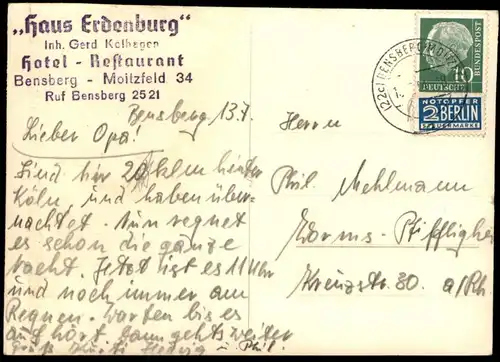 „Haus Erdenburg"
Inh. Gerd Kolhagen
Hotel - Restaurant
Bensberg - Moitzfeld 34
Ruf Bensberg 2521
Bensberg 13.7.
Lieber Opa!
Sind hier 20 klm hinter
Köln, und haben über-
nachtet. Nun regnet
es schon die ganze
nacht. Jetzt ist es 11 Uhr
und noch immer am
Regnen. warten bis es
auf hört. dann gehts weiter
Hedwig u Phil.
Herrn
Phil. Mehlmann
Worms-Pfiffligheim
Kreuzstr. 30. a/Rh
(22c) BENSBERG
10
DEUTSCHE
BUNDESPOST
NOTOPFER
2 BERLIN
STEUERMARKE